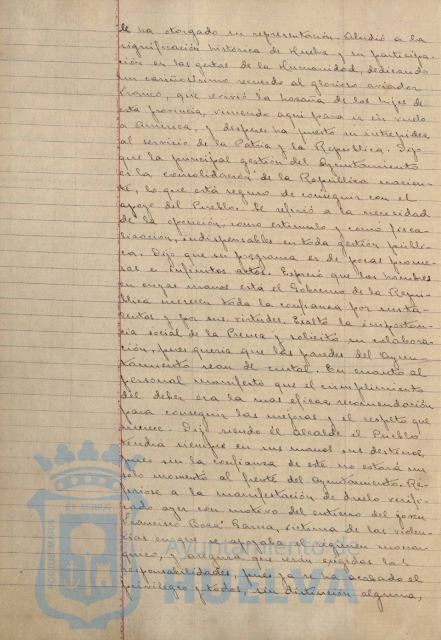 le ha otorgado su representación. Aludió a la
significación histórica de Huelva y su participa-
ción en las gestas de la Humanidad, dedicando
un cariñosísimo recuerdo al glorioso aviador
Franco, que revivió la hazaña de los hijos de
esta provincia, viniendo aquí para ir en vuelo
a América, y después ha puesto su intrepidez
al servicio de la Patria y la República. Dijo
que la principal gestión del Ayuntamiento
es la consolidación de la República nacien-
te, lo que está seguro de conseguir con el
apoyo del Pueblo. Se refirió a la necesidad
de la oposición, como estímulo y como fisca-
lización, indispensables en toda gestión públi-
ca. Dijo que su programa es de pocas prome-
sas e infinitos actos. Expresó que los hombres
en cuyas manos está el Gobierno de la Repú-
blica merecen toda la confianza por sus ta-
lentos y por sus virtudes. Exaltó la importan-
cia social de la Prensa y solicitó su colabora-
ción, pues quería que las paredes del Ayun-
tamiento sean de cristal. En cuanto al
personal manifestó que el cumplimiento
del deber era la mas eficaz recomendación
para conseguir las mejoras y el respeto que
merece. Dijo siendo él alcalde el Pueblo
tendrá siempre en sus manos sus destinos,
pues sin la confianza de este no estará un
solo momento al frente del Ayuntamiento. Re-
firiose a la manifestación de duelo verifi-
cada ayer con motivo del entierro del joven
Francisco García, víctima de las violen-
cias en que se apoyaba el régimen monar-
quico, y aseguró que serán exigidas las
responsabilidades, pues ya se ha acabado el
privilegio y todos, sin distinción alguna,
Ayuntamiento de
HUELVA